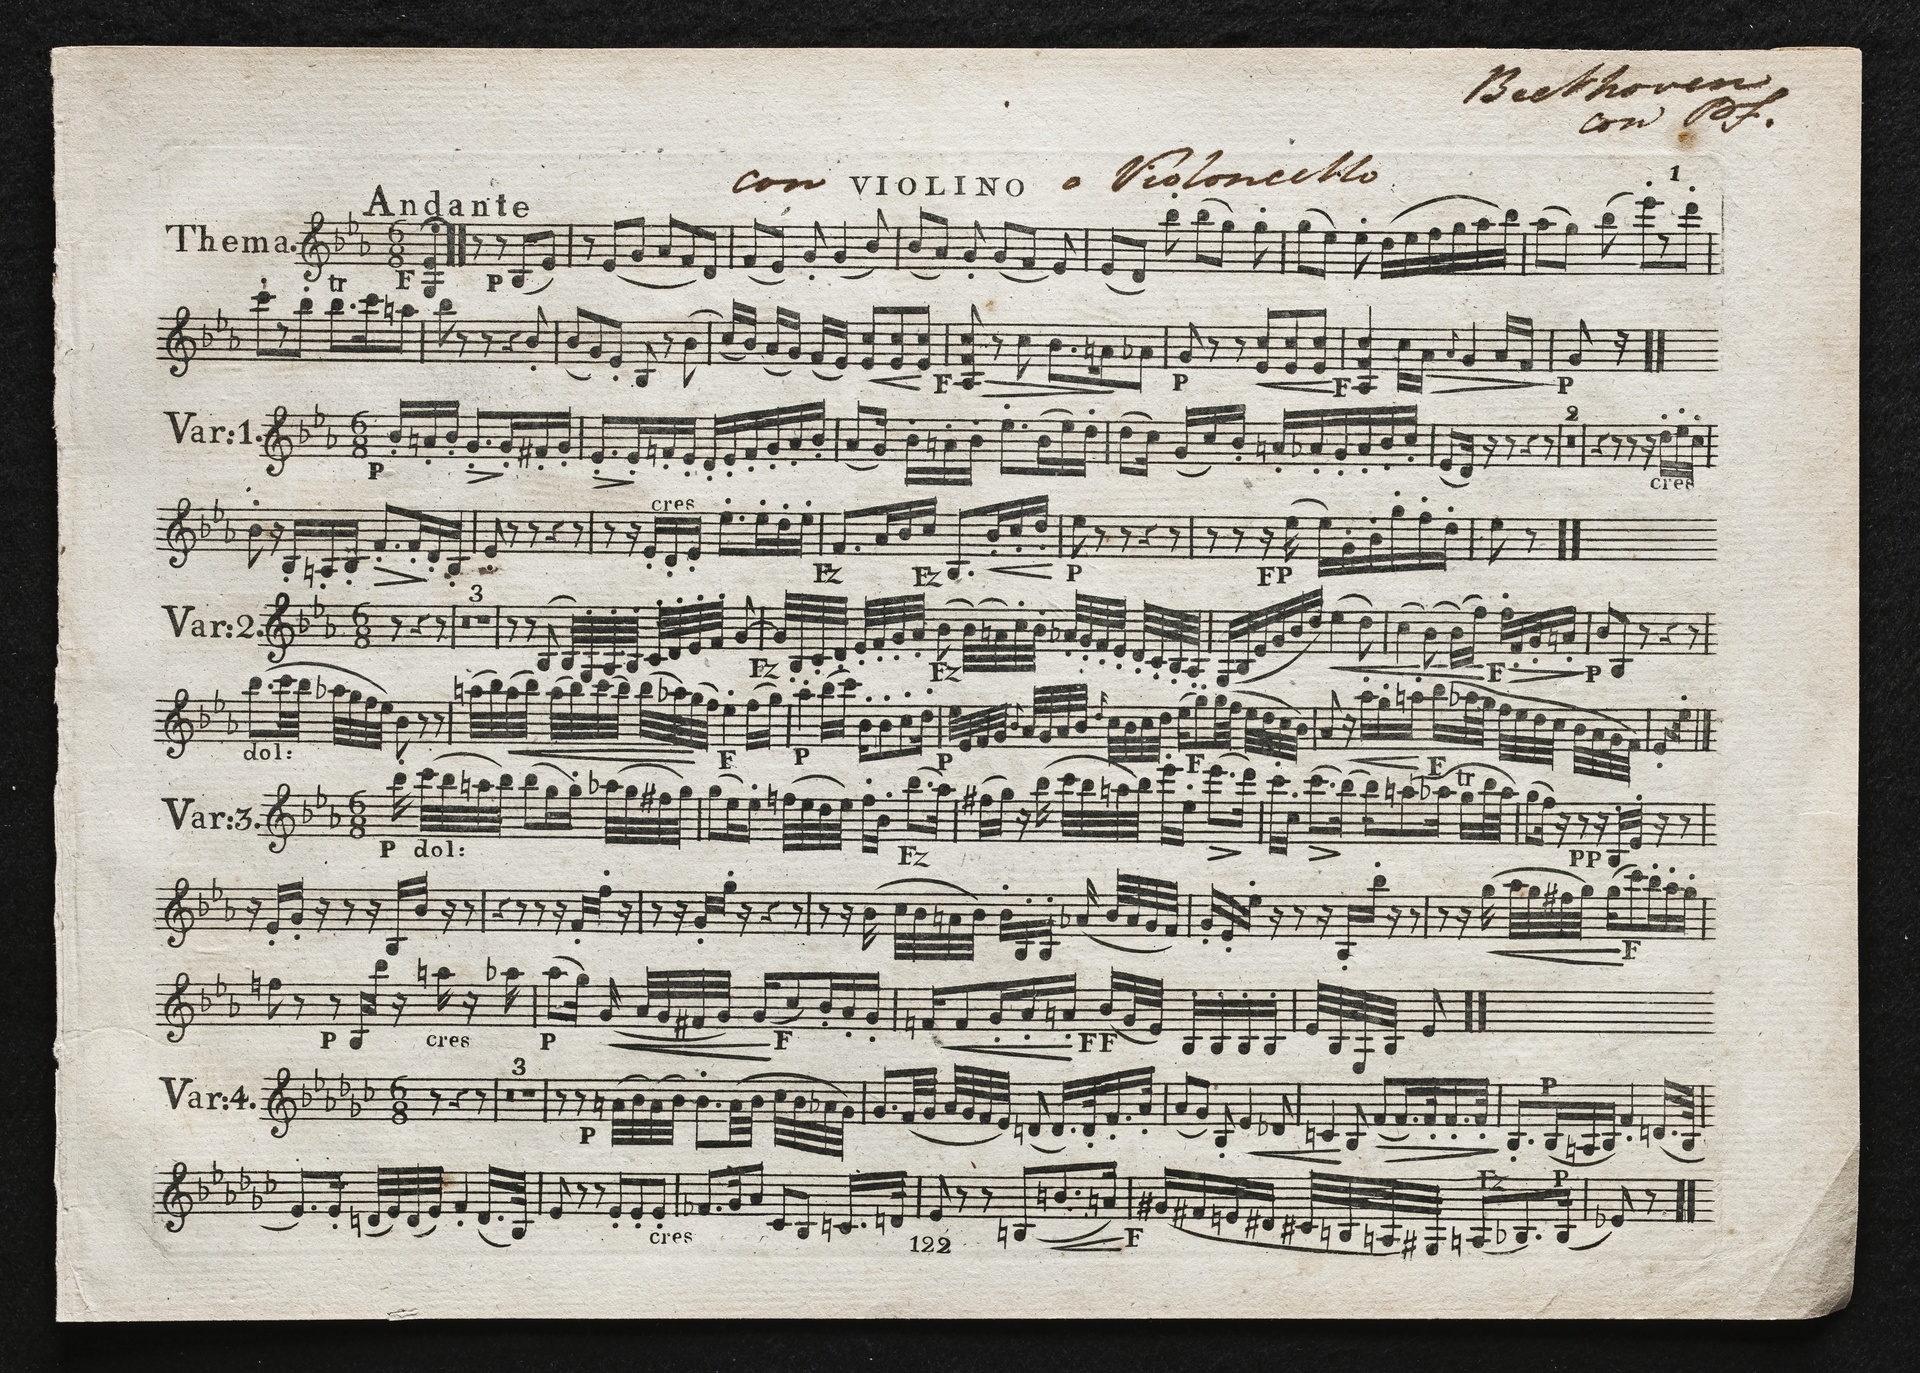 Beethoven
con Pf.
con VIOLINO o Violoncello
1
Andante
Thema. 6 8 F P
tr
F F P F P
Var:1. 6 8 P 2 cres
cres
Fz Fz P FP
Var:2. 6 8 3 Fz Fz F P
dol: F P P F F
Var:3. 6 8 P dol: Fz tr PP
F
P cres P F FF
Var:4. 6 8 3 P P
cres F Fz P
122